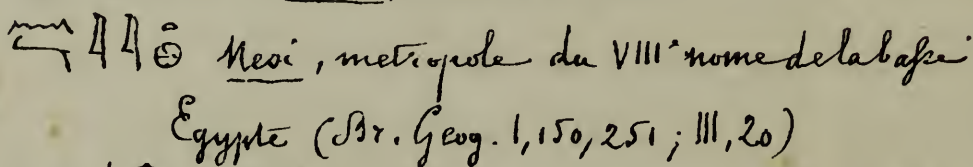 𓈖𓂝𓇋𓇋𓏏𓊖 Neai, metropole du VIII<sup>e</sup> nome de la basse
Egypte (Br. Geog. I, 150, 251; III, 20)